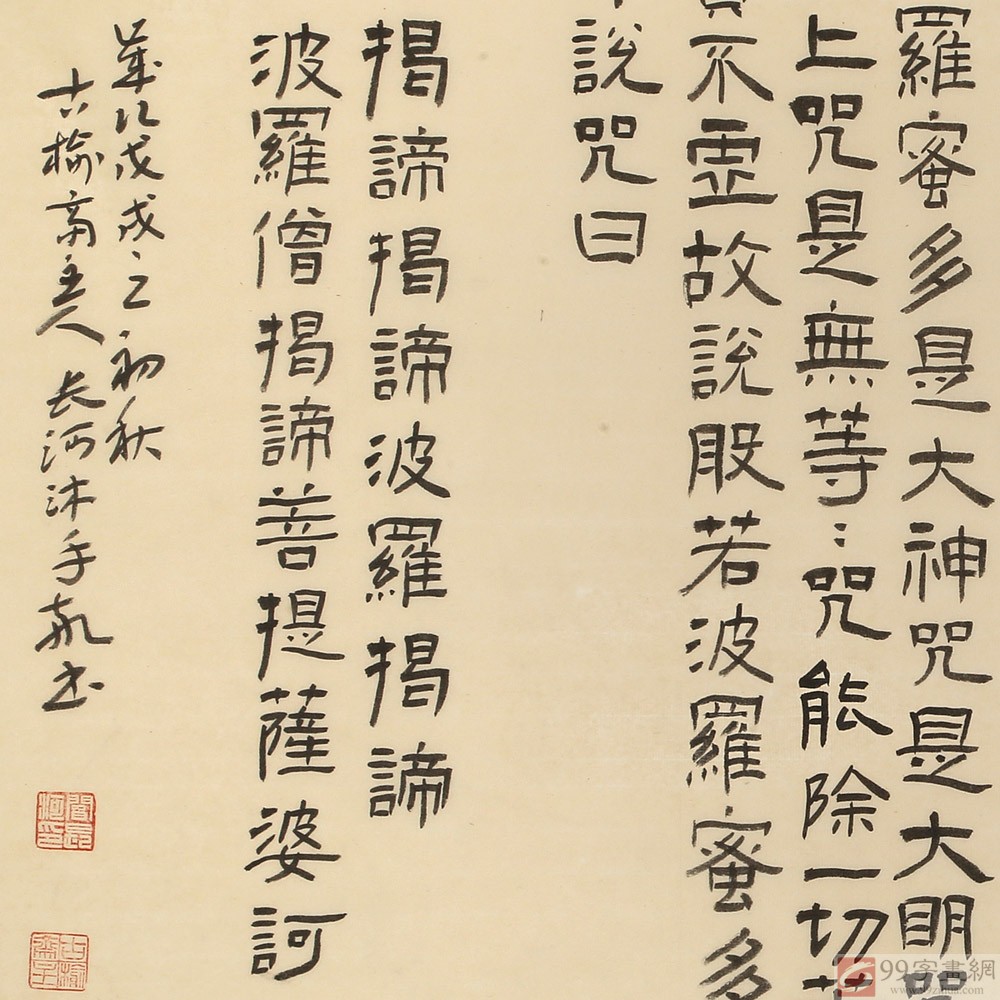 羅蜜多是大神咒是大明咒
上咒是無等〻咒能除一切苦
實不虛故說般若波羅蜜多
說咒曰
揭諦揭諦波羅揭諦
波羅僧揭諦菩提薩婆訶
歲次戊戌之初秋
古榆齋主人长河沐手敬书
閻長河印
99字畫網
www.99zihua.com